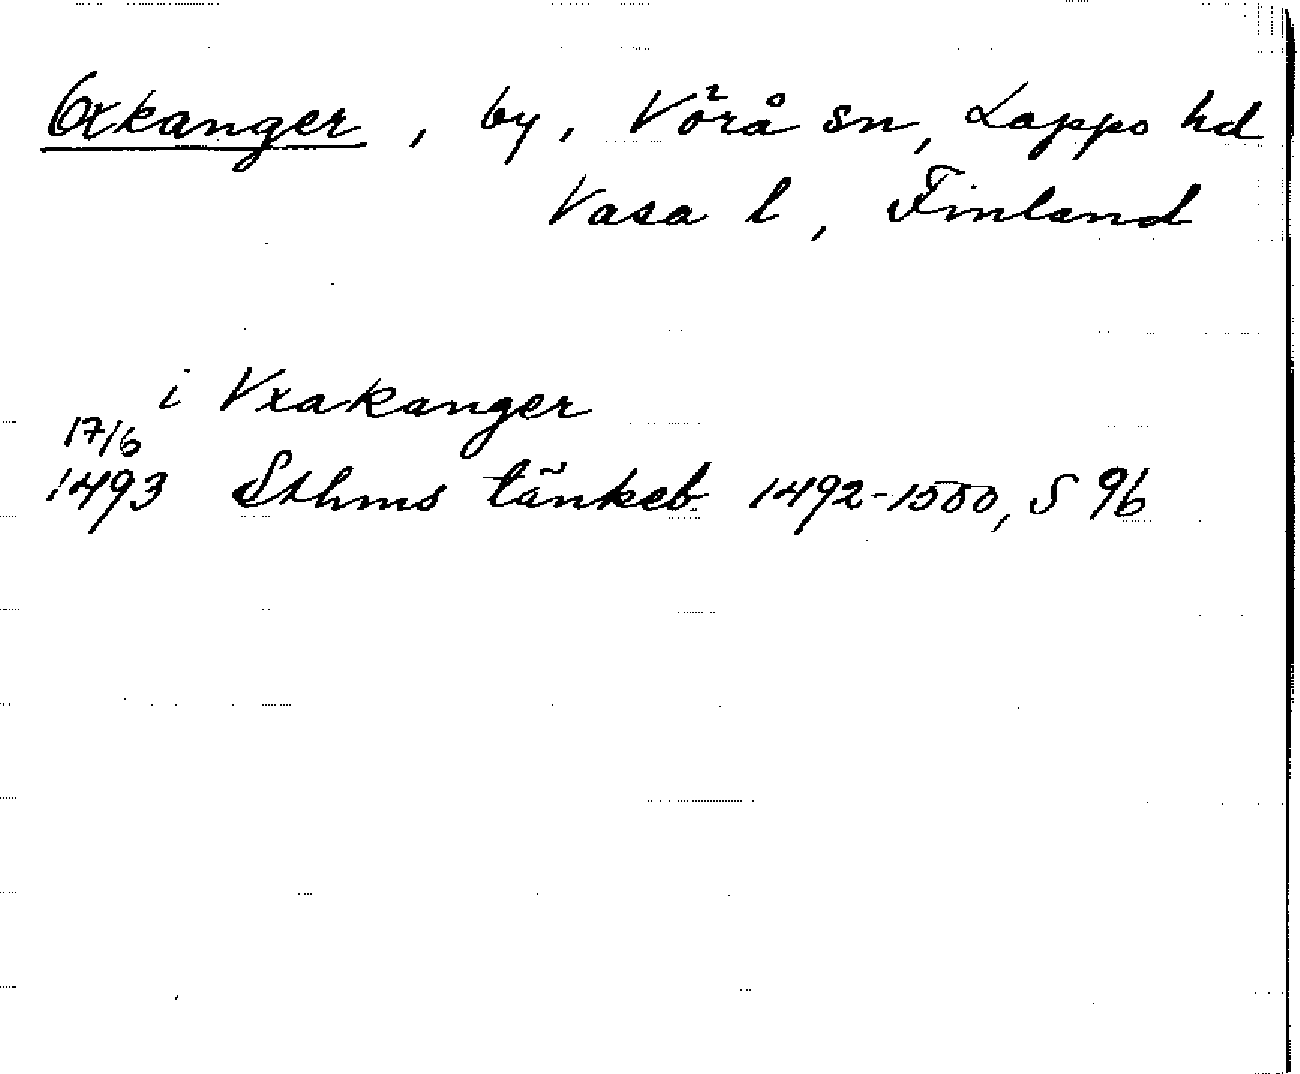 Oxkanger, by, Vörå sn, Lappo hd
Vasa l, Finland
i Vxakanger
17/6
1493 Sthms tänkeb. 1492-1500, S 96